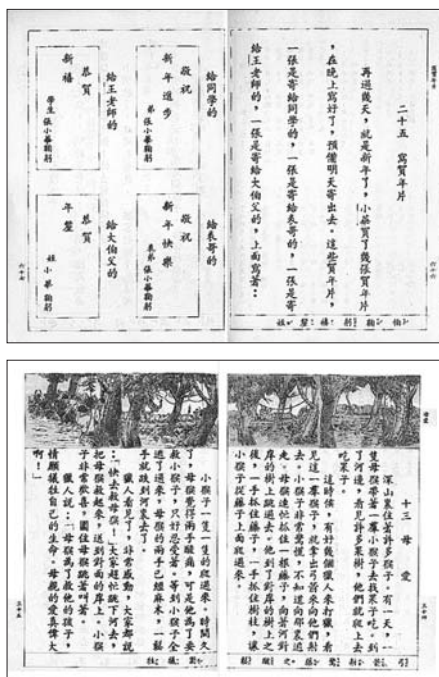 二十五　寫賀年片
再過幾天，就是新年了，小華買了幾張賀年片
，在晚上寫好了，預備明天寄出去。這些賀年片，
一張是寄給同學的，一張是寄給表哥的，一張是寄
給王老師的，一張是寄給大伯父的，上面寫著：
給同學的
敬祝
新年進步
弟 張小華鞠躬
給表哥的
敬祝
新年快樂
表弟 張小華鞠躬
給王老師的
恭賀
新禧
學生 張小華鞠躬
給大伯父的
恭賀
年釐
姪 小華 鞠躬
六十六
六十七
伯 鞠 躬 禧 釐 姪
母愛
十三　母　愛
深山裏住著許多猴子。有一天，一
隻母猴帶著一羣小猴子去找果子吃。到
了河邊，看見許多果樹，他們就爬上去
吃果子。
這時候，有好幾個獵人來打獵，看
見這一羣猴子，就拿出弓箭來向他們射
去。小猴子非常驚慌，不知道向那裏逃
走。母猴連忙抓住一根藤子，向著河對
岸的樹上跳過去。他到了對岸的樹上之
後，一手抓住藤子，一手抓住樹枝，讓
小猴子從藤子上面爬過來。
三十四
小猴子一隻一隻的爬過來。時間久
了，母猴覺得兩手酸痛，可是他為了要
救小猴子，只好忍受著。等到小猴子全
逃了過來，母猴的兩手已經麻木，一鬆
手就跌到河裏去了。
獵人看見了，非常感動，大家都說
：「快去救母猴！」大家趕忙跳下河去，
把母猴救起來，送到對面的岸上。小猴
子非常歡喜，圍住母猴跳著叫著。
獵人說：「母猴為了救他的孩子，
情願犧牲自己的生命。母愛的愛真偉大
啊！」
三十五